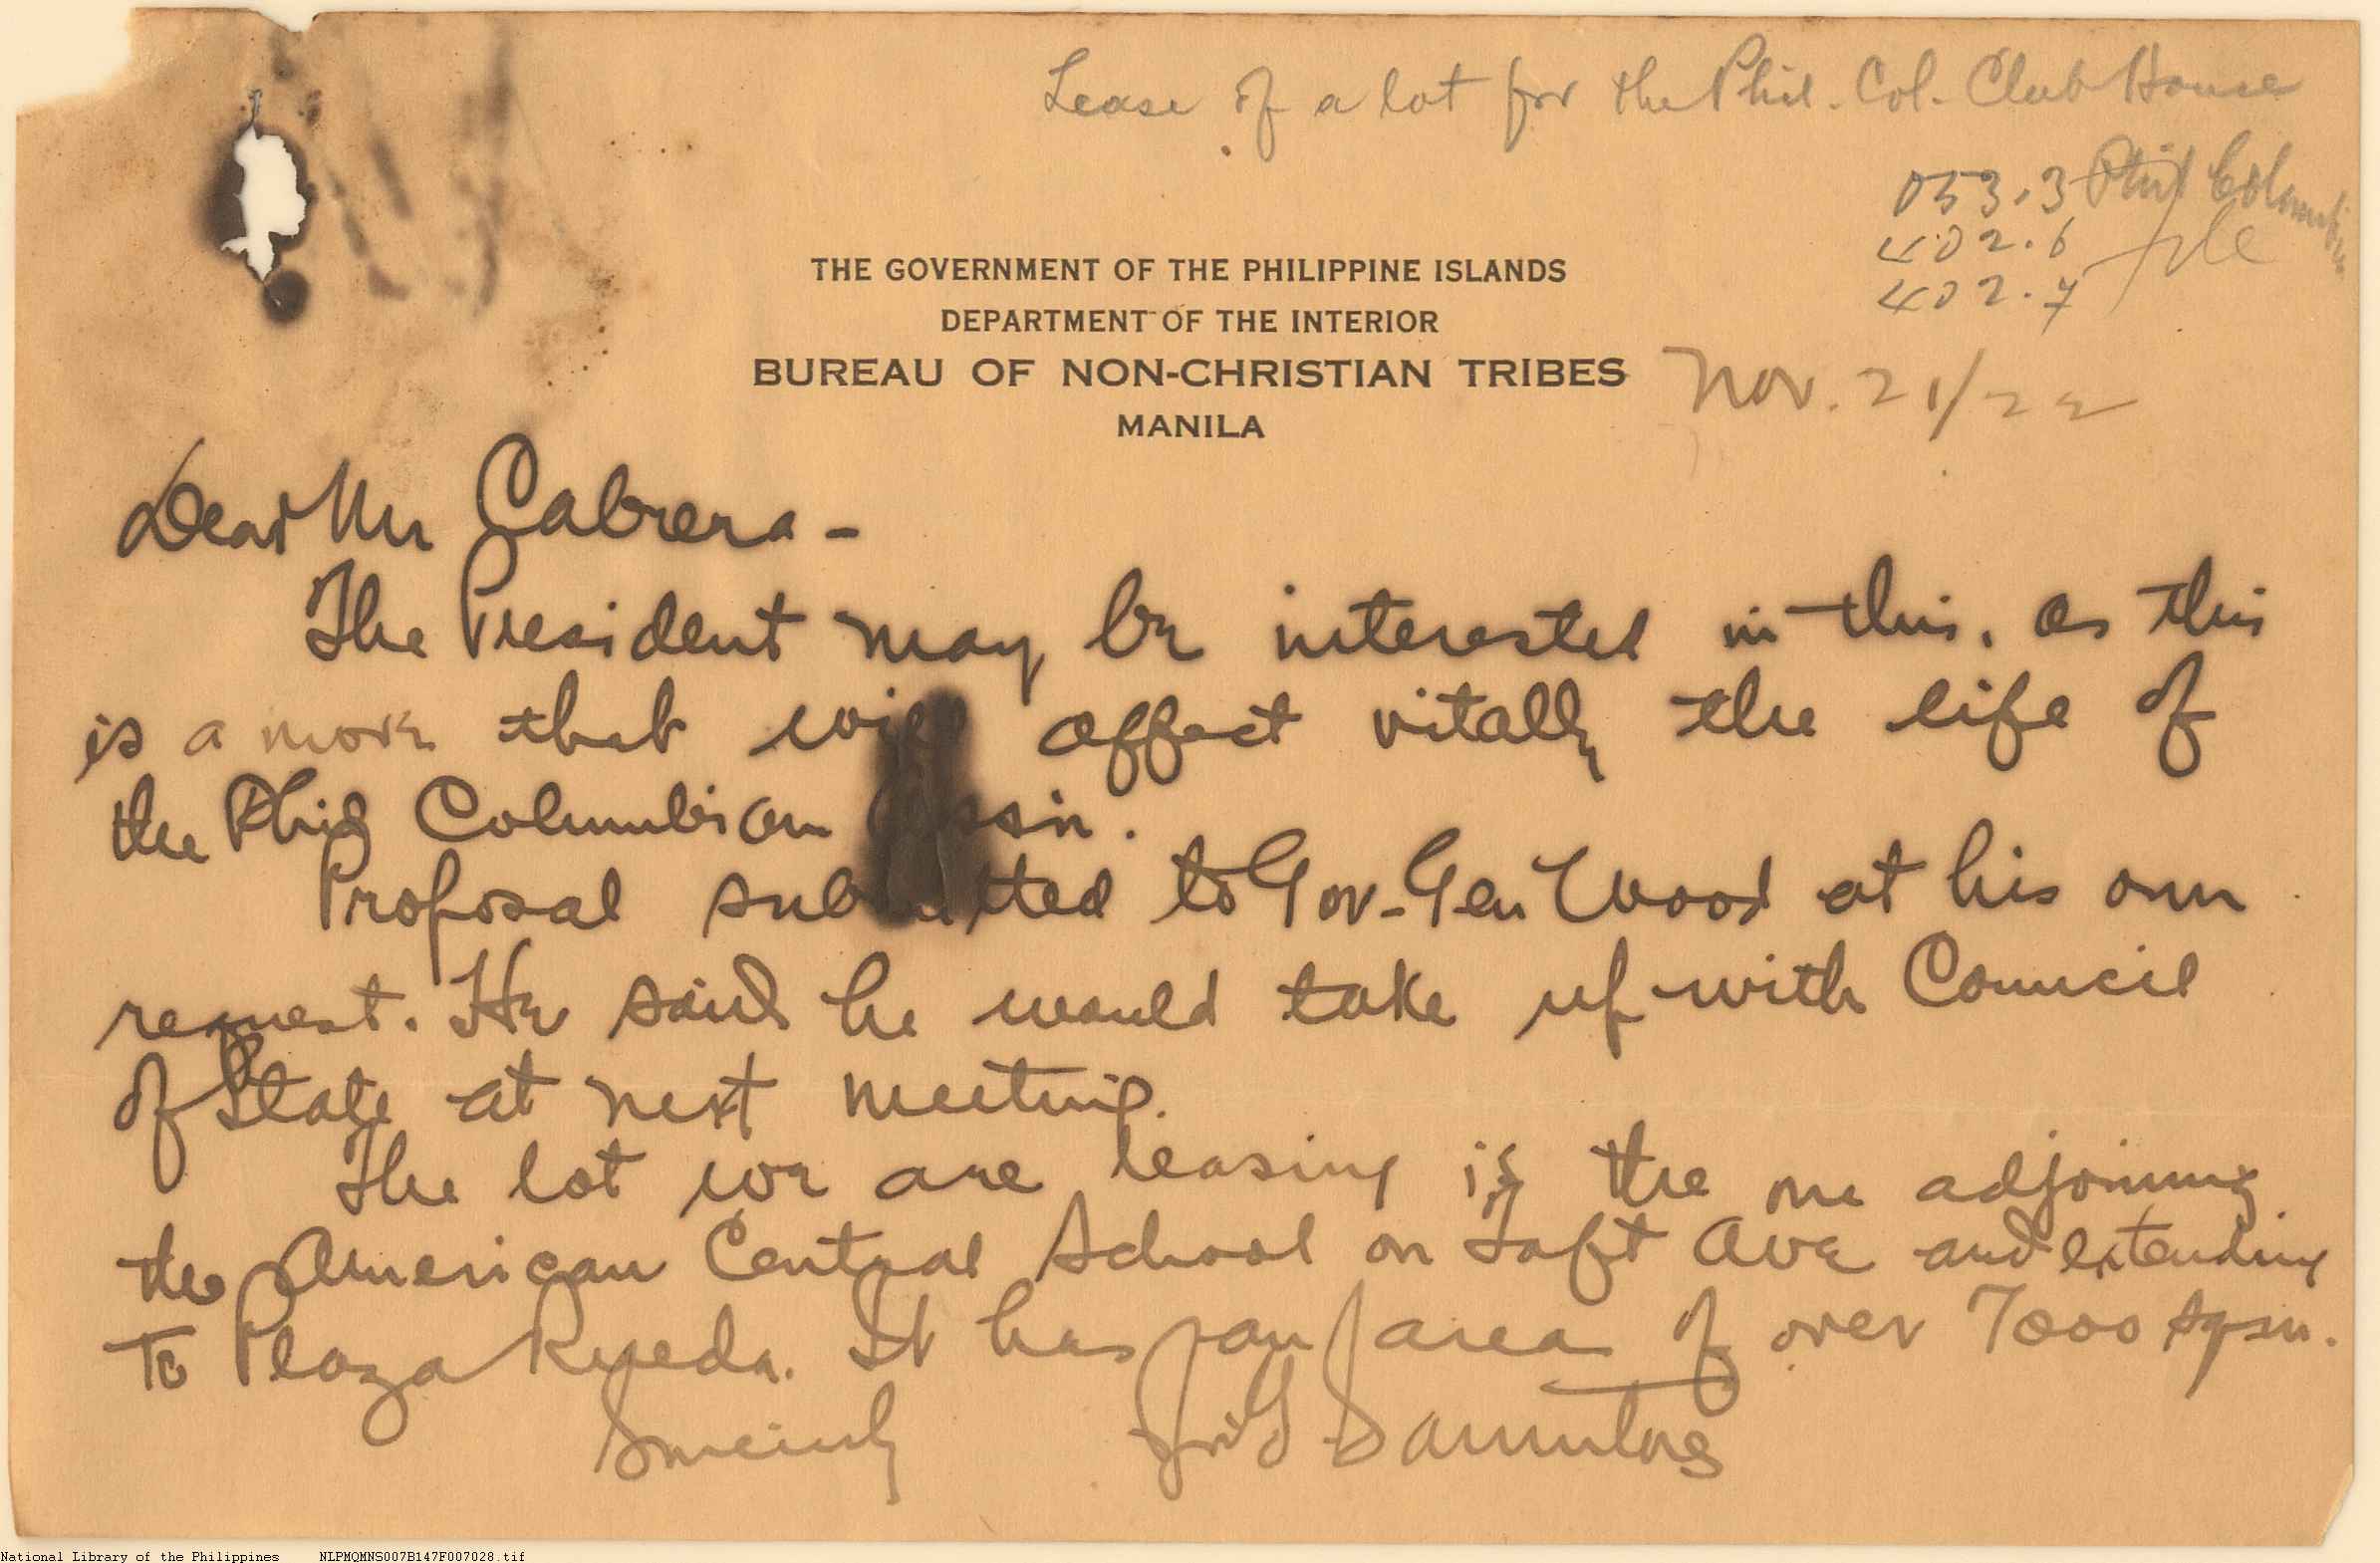 Lease of a lot for the Phil. Col. Club House
053.3 Phil Columbian
402.6 file
402.7
THE GOVERNMENT OF THE PHILIPPINE ISLANDS
DEPARTMENT OF THE INTERIOR
BUREAU OF NON-CHRISTIAN TRIBES
MANILA
Nov. 21/22
Dear Mr Cabrera -
The President may be interested in this, as this
is a move that will affect vitally the life of
the Phil Columbian Assn.
Proposal submitted to Gov-Gen Wood at his own
request. He said he would take up with Council
of State at next meeting.
The lot we are leasing is the one adjoining
the American Central School on Taft Ave and extending
to Plaza Rueda. It has an area of over 7000 sqm.
Sincerely
National Library of the Philippines NLPMQMNS007B147F007028.tif